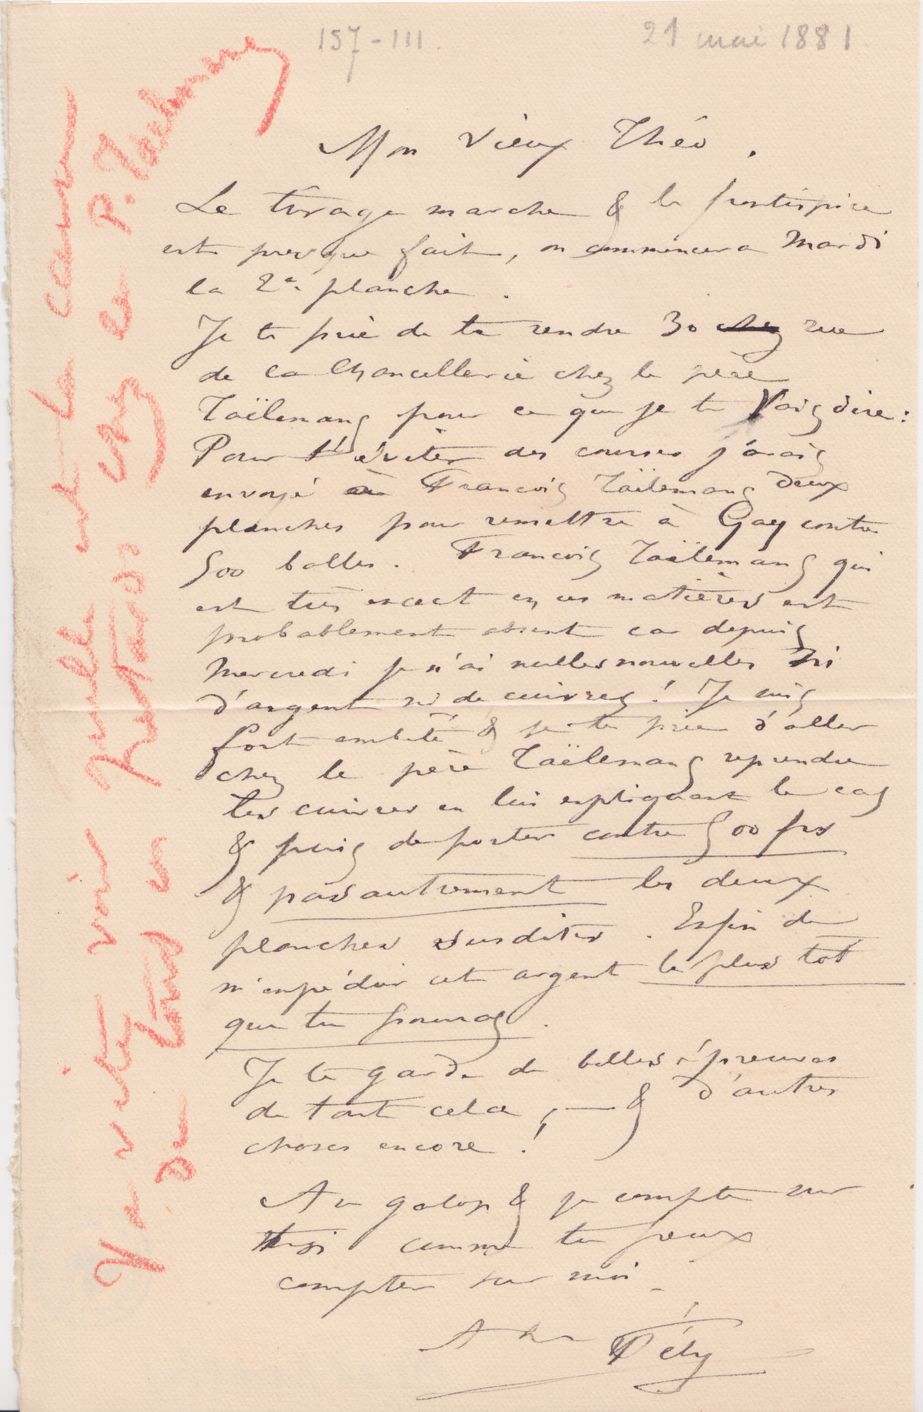 157-III.
21 mai 1881.
Mon vieux Théo.
Le tirage marche & le frontispice
est presque fait, on commencera Mardi
la 2e planche.
Je te prie de te rendre 30 chez rue
de la Chancellerie chez le père
Taëlemans pour ce que je te vais dire :
Pour t'éviter des courses j'avais
envoyé à François Taëlemans deux
planches pour remettre à Gay contre
500 balles. François Taëlemans qui
est très exact en ces matières est
probablement absent car depuis
Mercredi je n'ai nulles nouvelles ni
d'argent ni de cuivres ! Je suis
fort embêté & je te prie d'aller
chez le père Taëlemans reprendre
les cuivres en lui expliquant le cas
& puis de porter contre 500 frs
& pas autrement les deux
planches susdites. Enfin de
m'expédier cet argent le plus tôt
que tu pourras.
Je te garde de belles épreuves
de tout cela, — & d'autres
choses encore !
Au galop & je compte sur
toi comme tu peux
compter sur moi
A toi Fély
Va vite voir quelle est la cause
de tous ces Retards chez le P. Taelmans